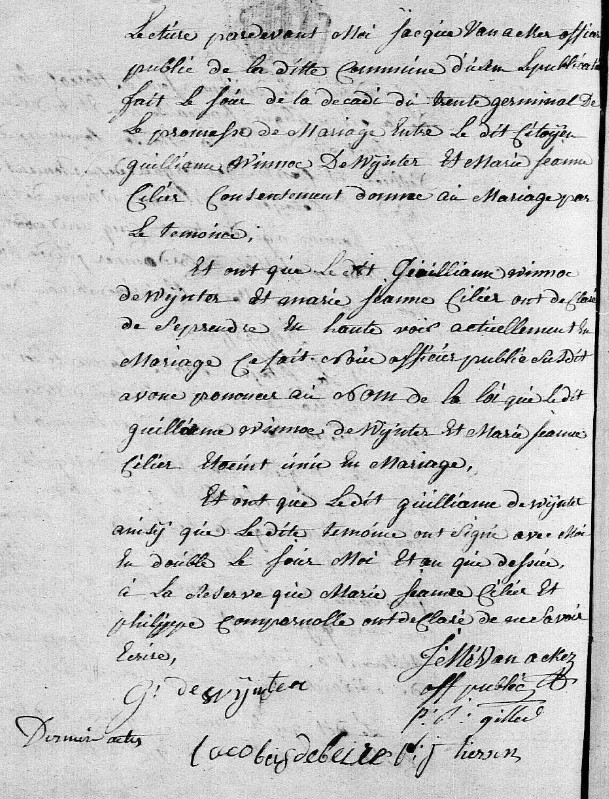 Lecture pardevant Moi Jacque Van acker officier
public de la ditte Commune d'un publicatie
fait le jour de la decadi du trente germinal De
Le promesse de Mariage Entre Le dit Citoÿen
guilliame winnoc De Wÿnter Et Marie Jeanne
Cilier Consentement donne au Mariage par
Le temoince,
Et ont que Le dit Guilliame winnoc
de wÿnter Et marie Jeanne Cilier ont de Claré
de Seprendre En haute voix actuellement En
Mariage Ce fait. Noúe officier public Susdit
avone prononcer au Nom de la loi que Le dit
guilliame winnoc de wÿnter Et Marie Jeanne
Cilier Etoeint únie En Mariage,
Et ont que Le dit guilliame de wÿnter
ainsÿ que Le dite temoince ont Signe avec Moi
En double Le Jour Moi Et an que dessúe,
à La Reserve que Marie Jeanne Cilier Et
philippe Compernolle ont de Claré de ne Savoir
Ecrire,
Van acker
G: de Wÿnter
off públic
Dernier acte
Jacobus de